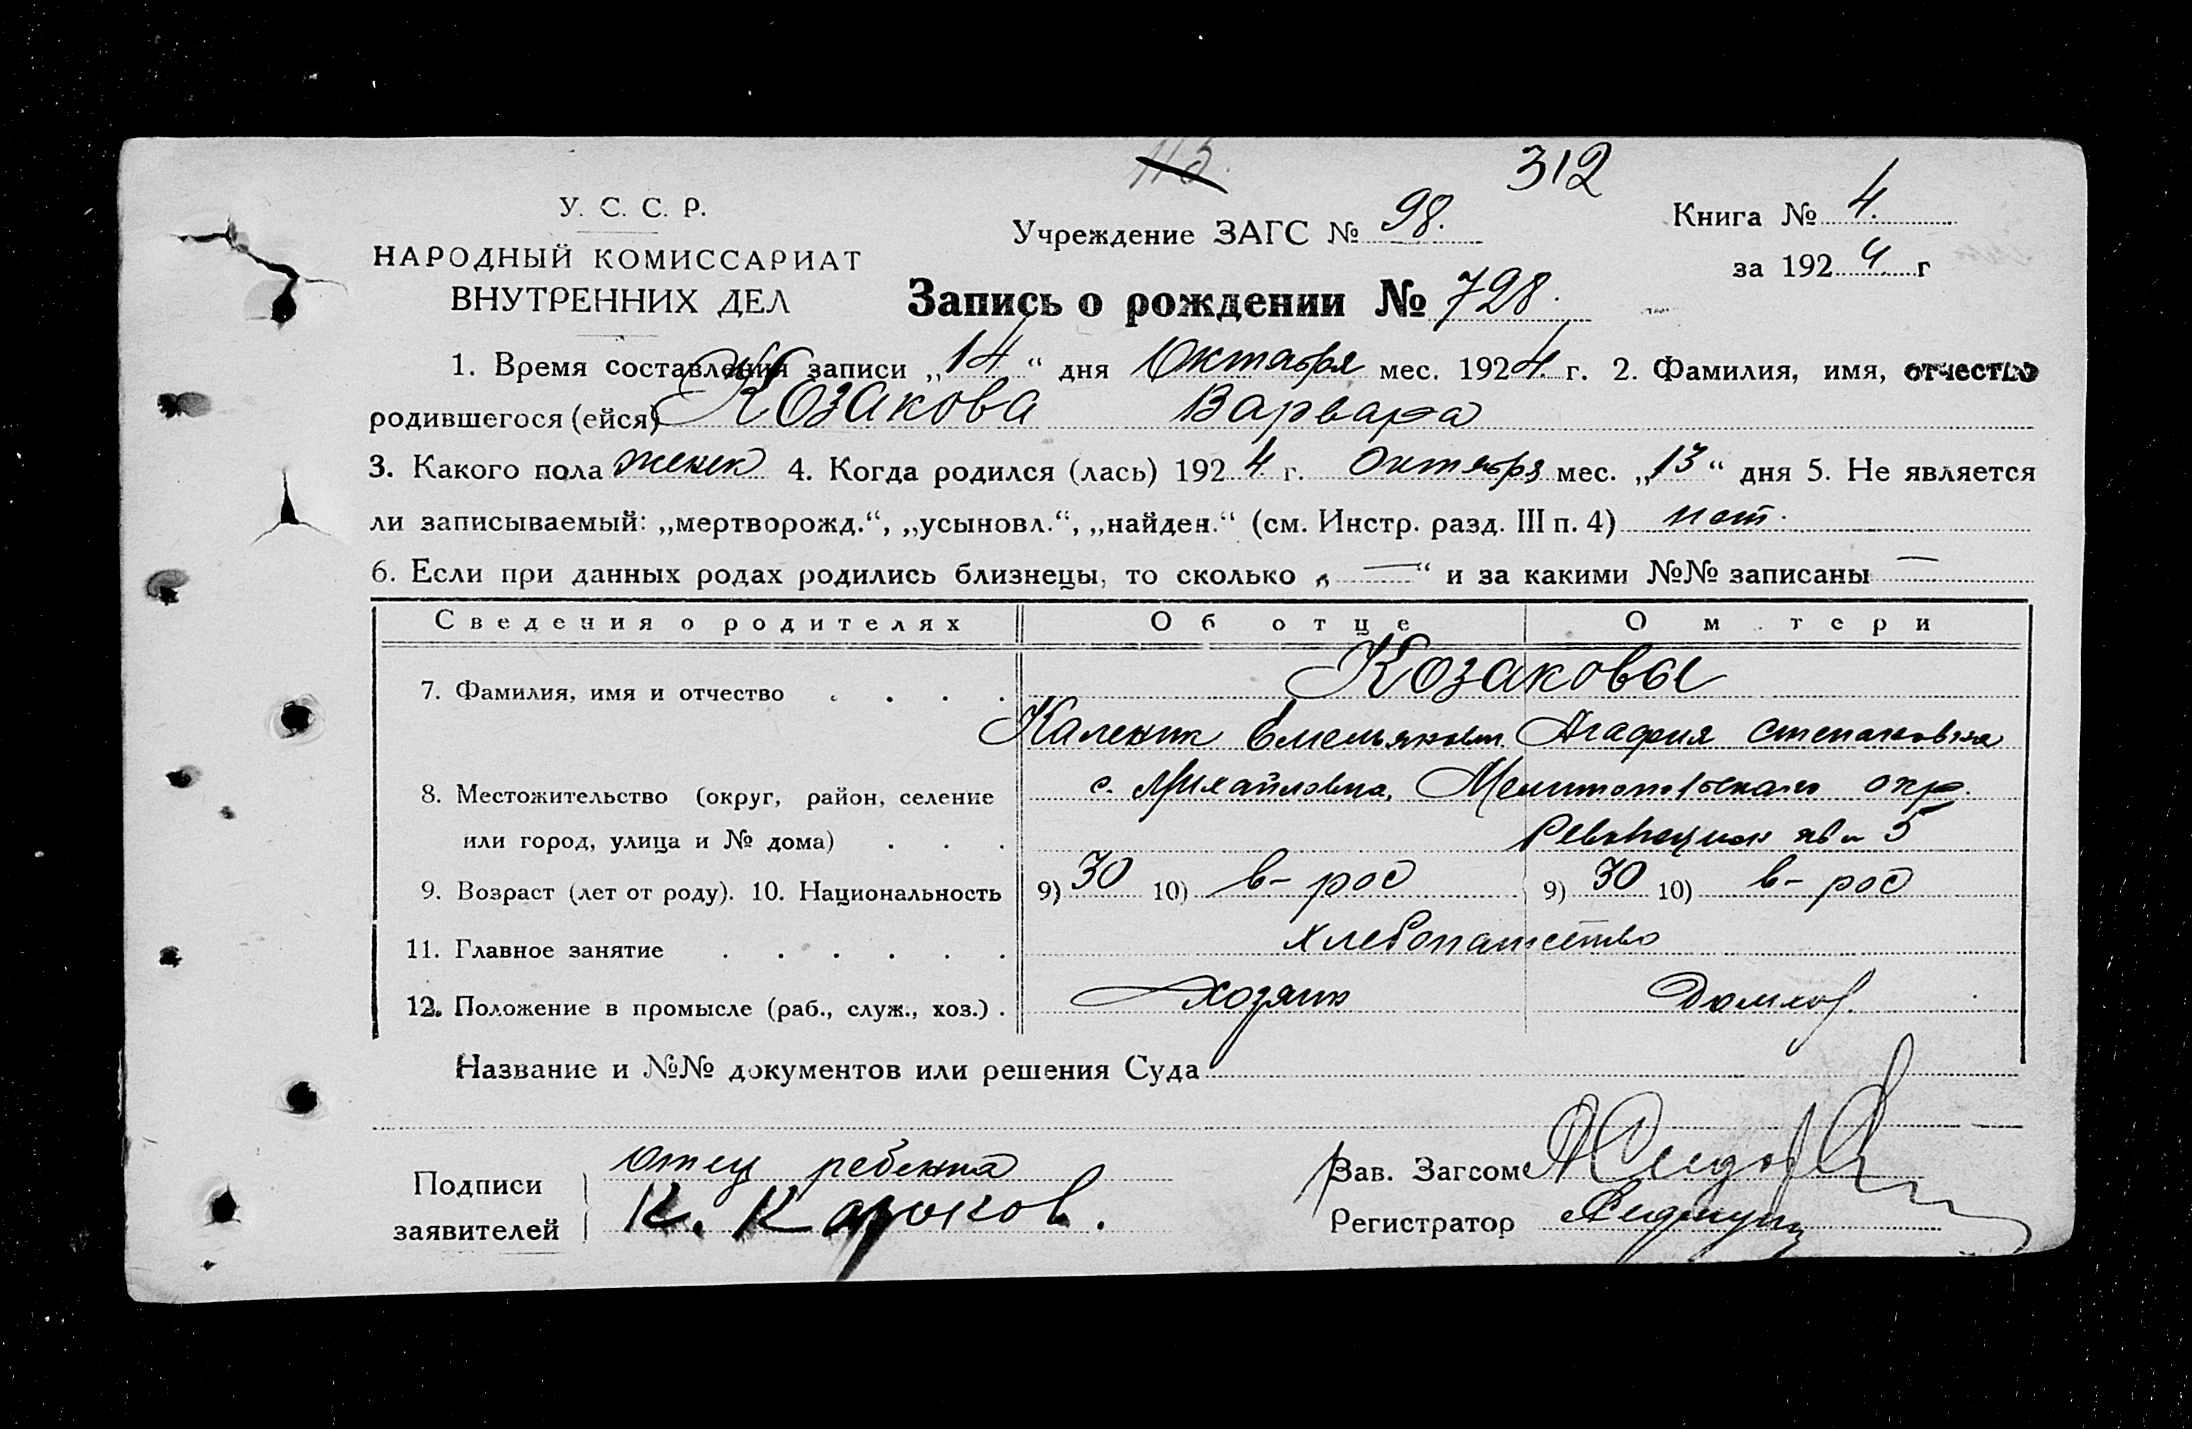 115.
312
У. С. С. Р.
НАРОДНЫЙ КОМИССАРИАТ
ВНУТРЕННИХ ДЕЛ
Учреждение ЗАГС № 98.
Книга № 4.
за 1924 г
Запись о рождении № 728.
1. Время составления записи „14“ дня Октября мес. 1924. г. 2. Фамилия, имя, отчество
родившегося (ейся) Козакова Варвара
3. Какого пола женск 4. Когда родился (лась) 1924 г. Октября мес. „13“ дня 5. Не является
ли записываемый: „мертворожд.“, „усыновл.“, „найден.“ (см. Инстр. разд. III п. 4) нет.
6. Если при данных родах родились близнецы, то сколько „—“ и за какими №№ записаны —
Сведения о родителях Об отце О м тери
7. Фамилия, имя и отчество . . . . Козаковы
Каленик Емельянов. Агафия Степановна
8. Местожительство (округ, район, селение с. Михайловка, Мелитопольского окр.
или город, улица и № дома) . . . 5
9. Возраст (лет от роду). 10. Национальность 9) 30 10) в-рос 9) 30 10) в-рос
11. Главное занятие . . . . . . хлебопашество
12. Положение в промысле (раб., служ., хоз.) . хозяин Домхоз.
Название и №№ документов или решения Суда
Подписи заявителей
отец ребенка
К.
Вав. Загсом
Регистратор